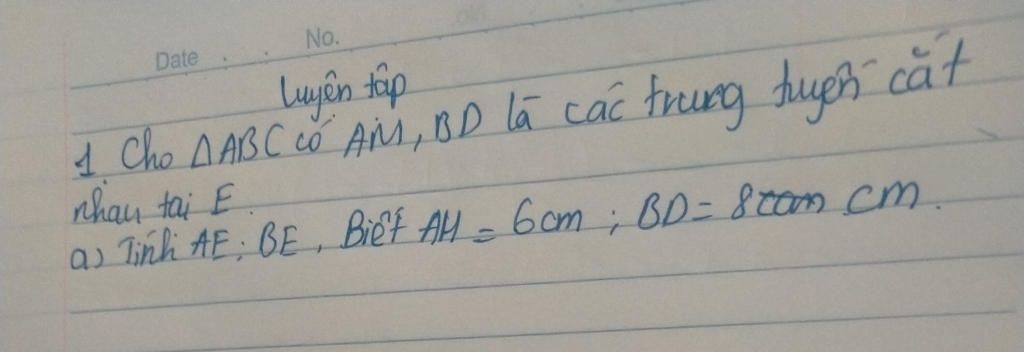 Date . . No.
luyện tập
1 Cho ΔABC có AM, BD là các trung tuyến cắt
nhau tại E.
a) Tính AE; BE, Biết AH = 6cm; BD = 8 cm.